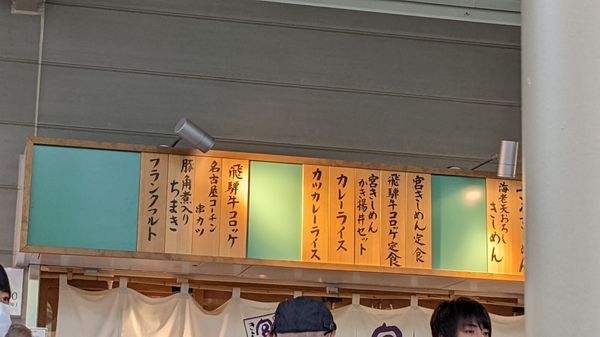 海老天おろし
きしめん
宮きしめん定食
飛騨牛コロッケ定食
宮きしめん
かき揚丼セット
カレーライス
カツカレーライス
飛騨牛コロッケ
名古屋コーチン
串カツ
豚角煮入り
ちまき
フランクフルト